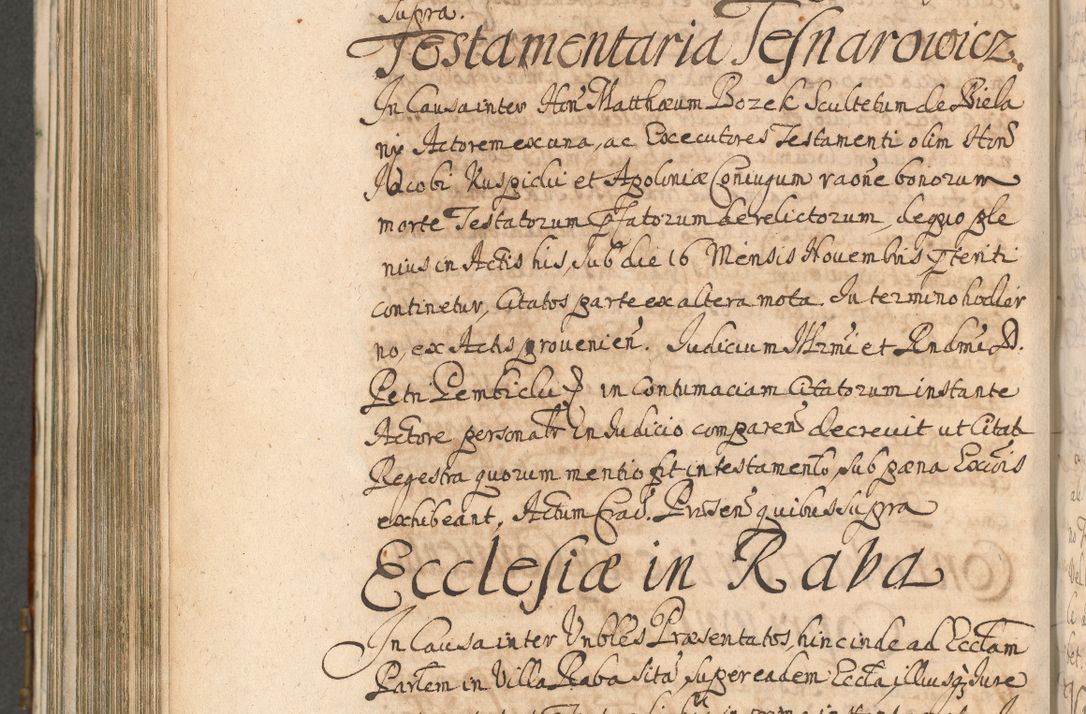 Supra.
Testamentaria Tesnarowicz.
In Causa inter Hon Matthæum Bozek Scultetum de Biela
ny Actorem ex una, ac Executores Testamenti olim Hon
Jacobi Kuspidii et Apoloniæ Coniugum raone bonorum
morte Testatorum pfatorum derelictorum, de quo ple
nius in Actis his, sub die 16 Mensis Novembris pteriti
continetur, Citatos parte ex altera mota. In termino hodier
no, ex Actis provenien. Judicium Illrmi et Rndmi D.
Petri Gembicki in Contumaciam Citatorum instante
Actore personalr in Judicio comparen decrevit ut Citati
Regestra quorum mentio fit in testamento, sub pœna Excois
exhibeant, Actum Crac. Præsen quibus supra
Ecclesiæ in Raba
In Causa inter Vnbles Præsentatos, hinc inde ad Ecclam
Parlem in Villa Raba sita, super eadem Eccla, illiusq Jure